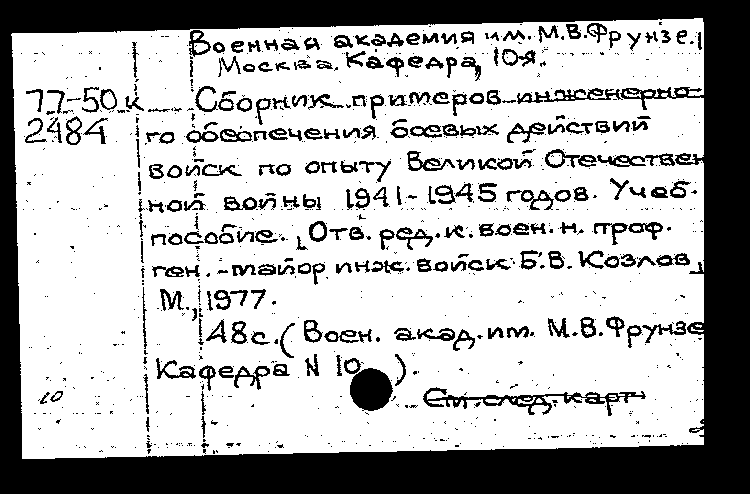 Военная академия им. М.В.Фрунзе.
Москва. Кафедра, 10-я.
77-50к Сборник примеров инженерно-
2484 го обеспечения боевых действий
войск по опыту Великой Отечествен
ной войны 1941-1945 годов. Учеб.
пособие. Отв. ред. к. воен. н. проф.
ген.-майор инж. войск Б.В. Козлов,
М., 1977.
48с. (Воен. акад. им. М.В.Фрунзе
Кафедра N 10 ).
10 См. след. карт